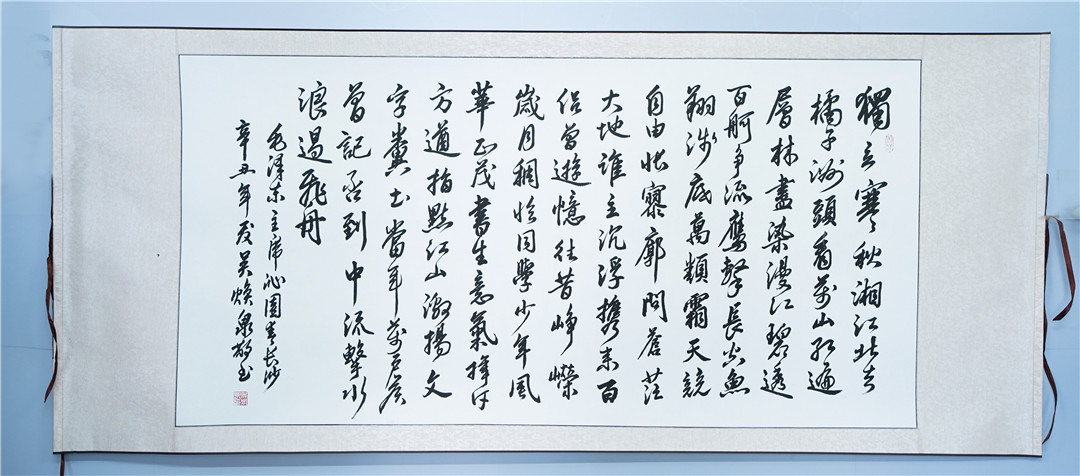 獨立寒秋湘江北去
橘子洲頭看萬山红遍
層林盡染漫江碧透
百舸争流鷹擊長空魚
翔淺底萬類霜天競
自由悵寥廓問蒼茫
大地誰主沉浮携来百
侣曾遊憶往昔崢嶸
歲月稠恰同學少年風
華正茂書生意氣揮斥
方遒指點江山激揚文
字糞土當年萬户侯
曾記否到中流擊水
浪遏飛舟
毛澤东主席沁園春長沙
辛丑年吴焕泉敬书